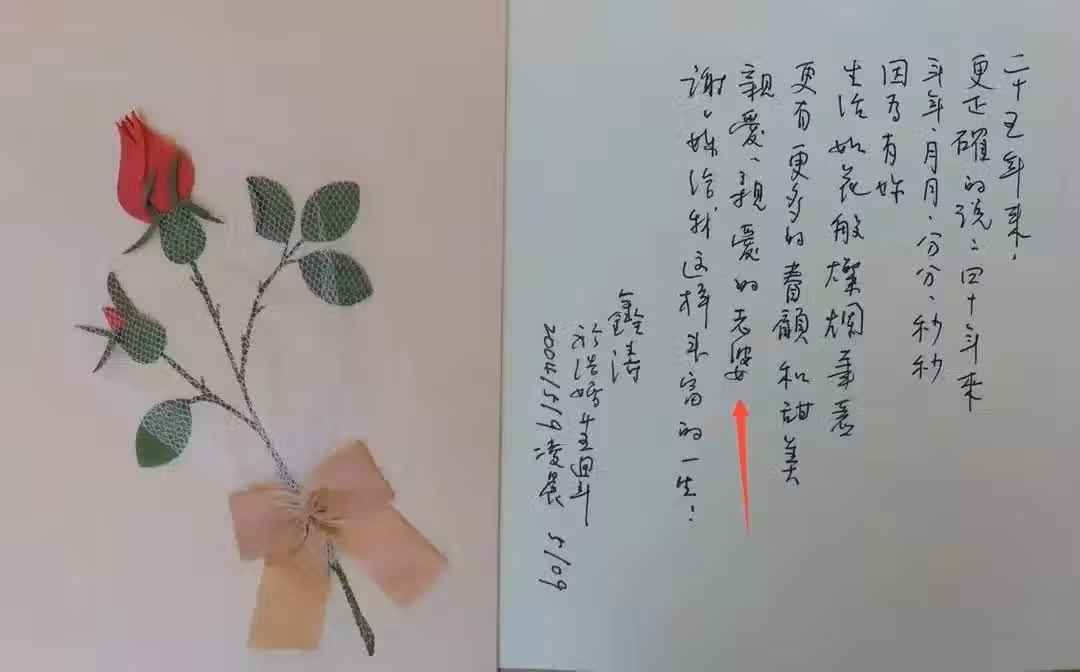 二十五年来，
更正確的説：四十年来
年年、月月、分分、秒秒
因為有妳
生活如花般燦爛華麗
更有更多的春韻和甜美
親愛、親愛的老婆
謝謝妳給我這樣丰富的一生！
鑫濤
於結婚廿五週年
2004/5/9凌晨 5/09